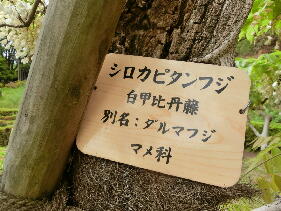 シロカピタンフジ
白甲比丹藤
別名：ダルマフジ
マメ科